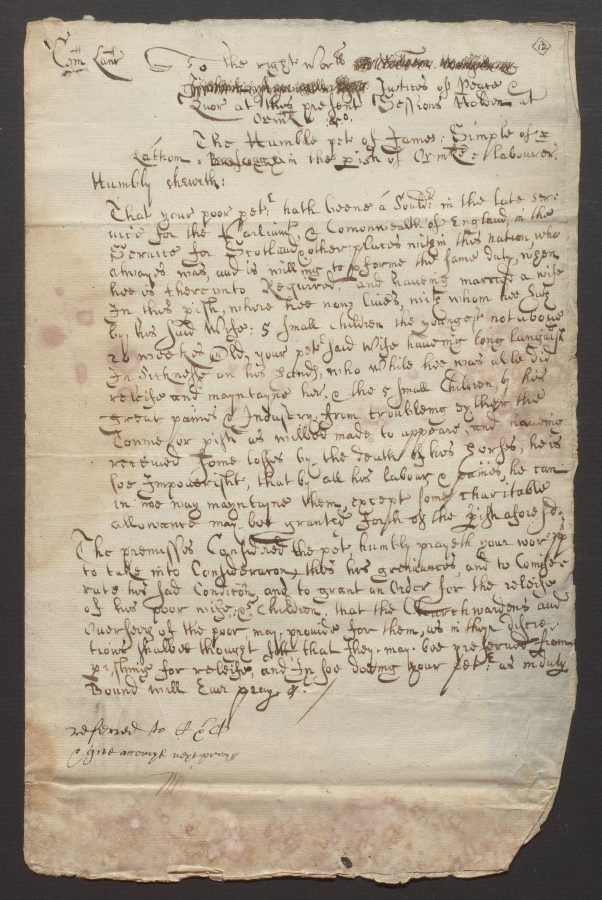 13
Com Lanc To the right wor:ll
Justices of Peace &
Quor at this present Sessions Holden at
Ormk: &c.
The Humble pet: of James: Simple of
Lathom in the pish of Ormk: labourer,
Humbly sheweth:
That your poor pet:r hath beene a Souldr: in the late ser
vice for the Parliamt: & Comonwealth of England, in the
Service for Scotland & other places within this nation, who
always was, and is willing to pforme the same duty, when
hee is thereunto Required, and haueing married a wife
In this pish, where hee now liues, with whom hee
by his said Wife: 5 small children the youngest not above
20 weekes Old, your petr said wife haueing long languisht
In Sicknes on his hands, who while hee was able did
releife and mayntayne her, & the 5 small Children by his
great paines & Industry, from troubleing eyther the
Towne or pish as willbee made to appeare, and haueing
receiued some losses by the death of his horses, he is
soe Impouerisht, that by all his labour & paines, he can
in noe way mayntayne them, except some charitable
allowance may bee granted forth of the pish aforesd:
The premisses Considered the petr: humbly prayeth your worpps
to take into Consideracon this his greiuances, and to Comise
rate his sad Condicon and to grant an Order for the releife
of his poor wife, & Children, that the Churchwardens and
Overseers of the poor, may provide for them, as in their discre
tions shalbee thought fitt that they may bee preserued from
pishinge for releife, and In soe doeing your petr: as in duty
Bound will Ever pray &
referred to
& give accompt next